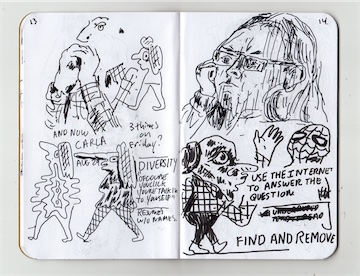 13
AND NOW
CARLA
3 things
on
Friday!
AUG 2
DIVERSITY
OF COURSE
YOU CLICK
YOU'RE TALKING
TO YOURSELF
RESUMES
W/O NAMES
14
USE THE INTERNET
TO ANSWER THE
QUESTION
FIND AND REMOVE